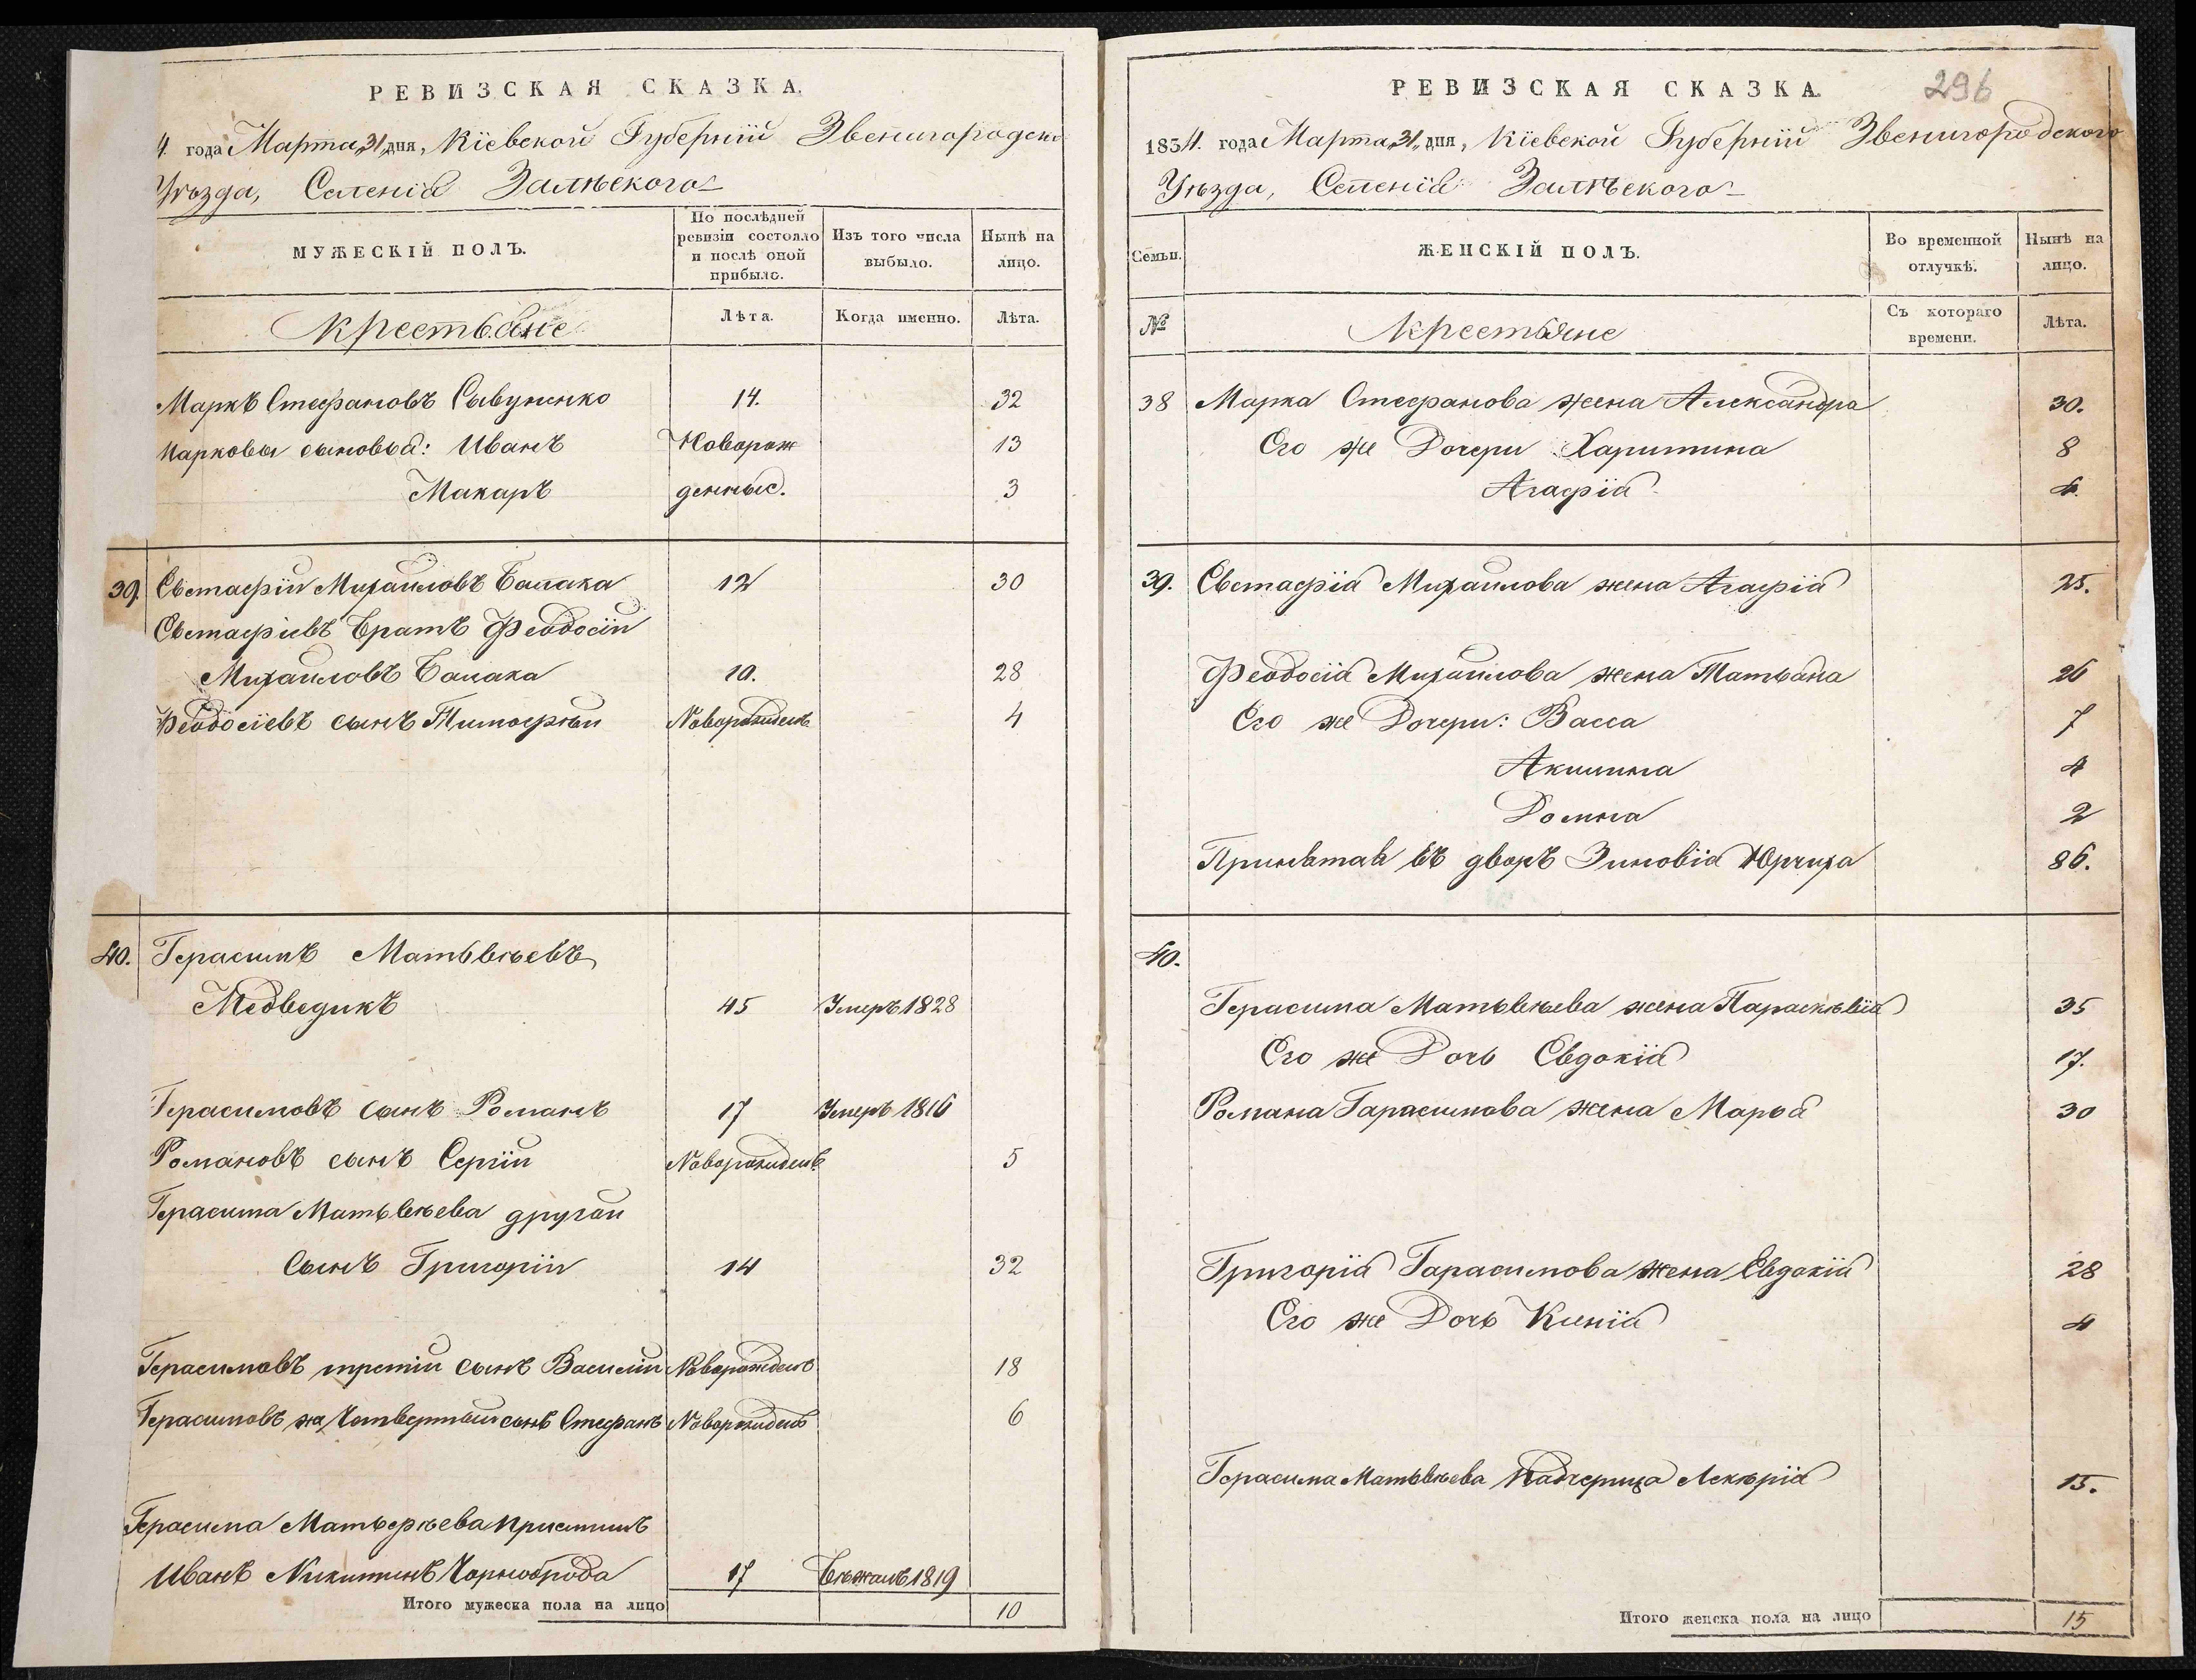 РЕВИЗСКАЯ СКАЗКА.
4. года Марта „31„ дня, Кіевской Губерніи Звенигородско
Уѣзда, Селенія Залѣского
МУЖЕСКІЙ ПОЛЪ.
По послѣдней ревизіи состояло и послѣ оной прибыло.
Изъ того числа выбыло.
Нынѣ на лицо.
Крестьяне
Лѣта.
Когда именно.
Лѣта.
Маркъ Стефановъ Савуненко 14. 32
Марковы сыновья: Иванъ Новорож 13
Макаръ денные. 3
39. Евстафій Михайловъ Балака 12 30
Евстафіевъ братъ Феодосій
Михайловъ Балака 10. 28
Феодосіевъ сынъ Тимофѣй Новорожденъ 4
40. Герасимъ Матьвѣевъ
Медведикъ 45 Умеръ 1828
Герасимовъ сынъ Романъ 17 Умеръ 1816
Романовъ сынъ Сергій Новорожденъ 5
Герасима Матьвѣева другой
сынъ Григорій 14 32
Герасимовъ третій сынъ Василій Новорожденъ 18
Герасимовъ же четвертый сынъ Стефанъ Новорожденъ 6
Герасима Матьфѣева приемышъ
Иванъ Никитинъ Чорноброда 17 Бѣжалъ 1819
Итого мужеска пола на лицо 10
РЕВИЗСКАЯ СКАЗКА.
296
1834. года Марта „31„ дня, Кіевской Губерніи Звенигородского
Уѣзда, Селенія Залѣского
Семьи.
ЖЕНСКІЙ ПОЛЪ.
Во временной отлучкѣ.
Нынѣ на лицо.
№
Крестьяне
Съ котораго времени.
Лѣта.
38 Марка Стефанова жена Александра 30.
Его же Дочери Харитина 8
Агафія 4.
39. Евстафія Михайлова жена Агафія 25.
Феодосія Михайлова жена Татьяна 26
Его же Дочери: Васса 7
Акилина 4
Домна 2
Принятая въ дворъ Зиновія Юрчиха 86.
40.
Герасима Матьвѣева жена Параскѣвія 35
Его же Дочь Евдокія 17.
Романа Гарасимова жена Марья 30
Григорія Гарасимова жена Евдокія 28
Его же Дочь Ксенія 4
Герасима Матьвѣева Падчерица Лекѣрія 15.
Итого женска пола на лицо 15